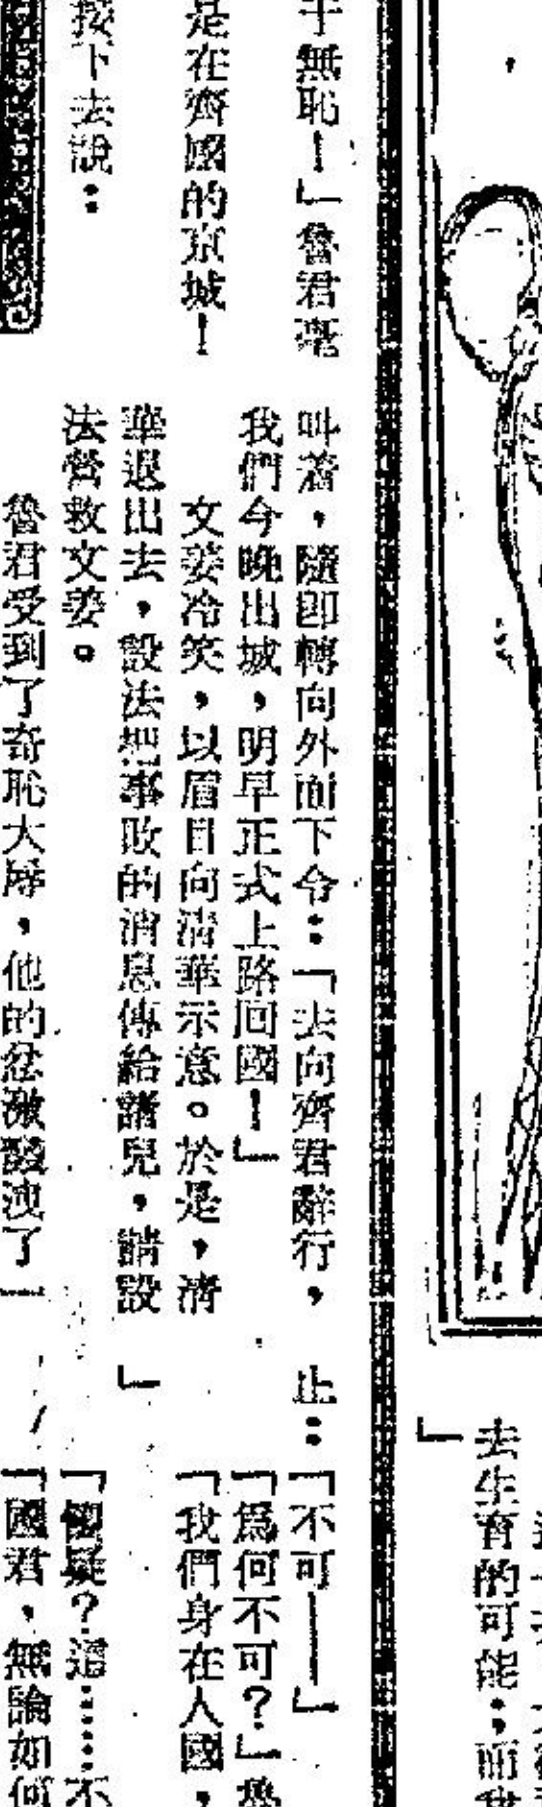 無恥！」魯君毫
是在齊國的京城！
按下去說：
叫着，隨即轉向外面下令：「去向齊君辭行，
我們今晚出城，明早正式上路回國！」
文姜冷笑，以眉目向清華示意。於是，清
華退出去，設法把事敗的消息傳給諸兒，請設
法營救文姜。
魯君受到了奇恥大辱，他的忿激發洩了一
去生育的可能；而我
」
止：「不可——」
「爲何不可？」魯
「我們身在人國，
」
「懷疑？這……不
「國君，無論如何